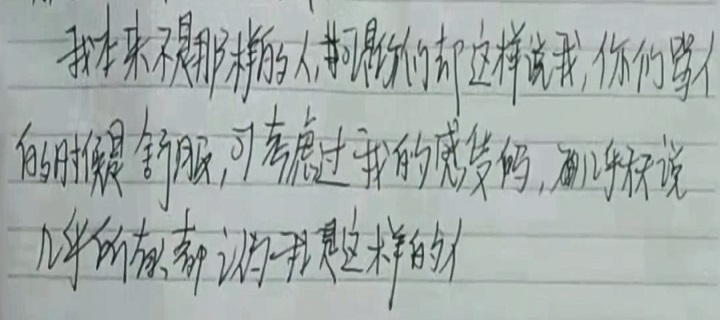 我本来不是那样的人,可是你们却这样说我,你们骂人
的时候是舒服,可考虑过我的感受吗,几乎 说
几乎所有人都认为我是这样的人